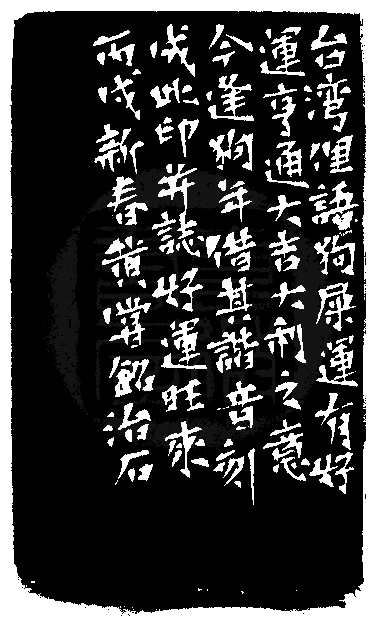 台湾俚語狗屎運有好
運亨通大吉大利之意
今逢狗年借其諧音刻
成此印并誌好運旺來
丙戌新春黄嘗銘治石